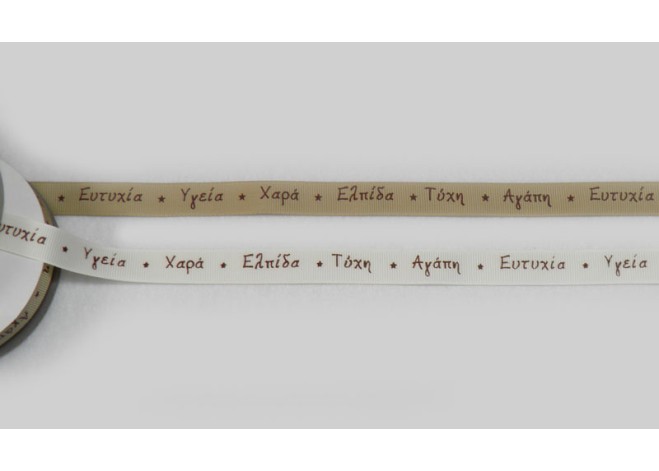 * Ευτυχία * Υγεία * Χαρά * Ελπίδα * Τύχη * Αγάπη * Ευτυχία
υτυχία * Υγεία * Χαρά * Ελπίδα * Τύχη * Αγάπη * Ευτυχία * Υγεία *